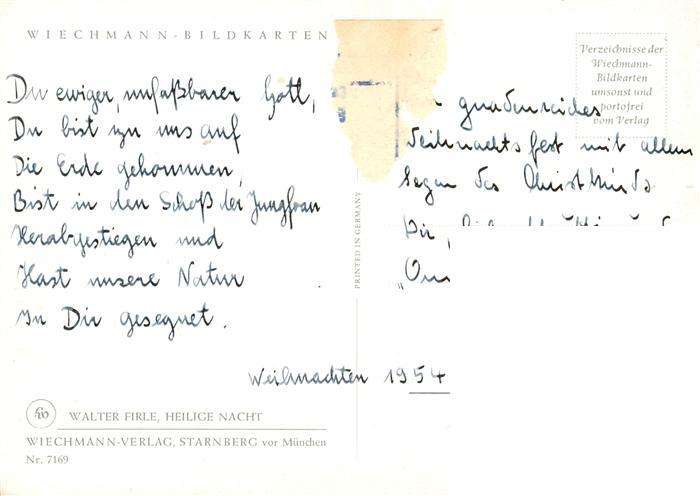 WIECHMANN-BILDKARTEN
Du ewiger, unfaßbarer Gott,
Du bist zu uns auf
Die Erde gekommen,
Bist in den Schoß der Jungfrau
Herabgestiegen und
Hast unsere Natur
In Dir gesegnet.
Weihnachten 1954
WALTER FIRLE, HEILIGE NACHT
WIECHMANN-VERLAG, STARNBERG vor München
Nr. 7169
PRINTED IN GERMANY
Verzeichnisse der
Wiechmann-
Bildkarten
umsonst und
portofrei
vom Verlag
gnadenreiches
Weihnachtsfest mit allem
Segen des Christkinds
Dir,